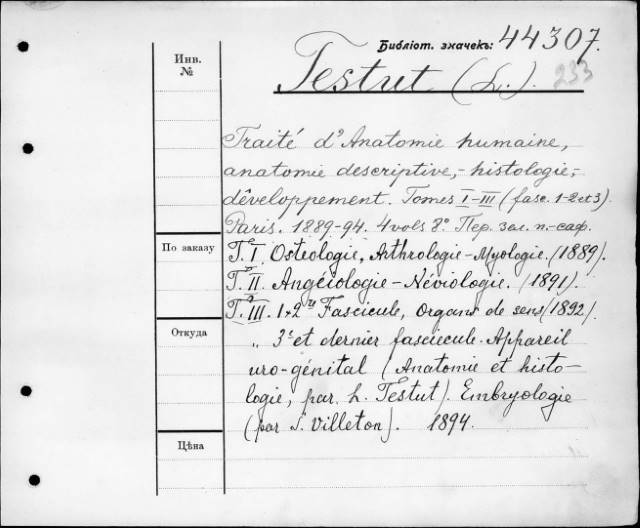 Библіот. значекъ: 44307.
Инв.
№
Testut (L.). 233
Traité d'Anatomie humaine,
anatomie descriptive, - histologie, -
dêveloppement. Tomes I-III (fasc. 1-2 et 3).
Paris. 1889-94. 4 vols 8º. Пер. заг. п.-саф.
По заказу
T. I. Osteologie, Arthrologie-Myologie. (1889).
T. II. Angéiologie-Néviologie. (1891).
T. III. 1+2re Fascicule, Organs de sens (1892).
Откуда
„ 3e et dernier fasciecule. Appareil
uro-génital (Anatomie et histo-
logie, par. L. Testut). Embryologie
(par S. Villeton). 1894.
Цѣна